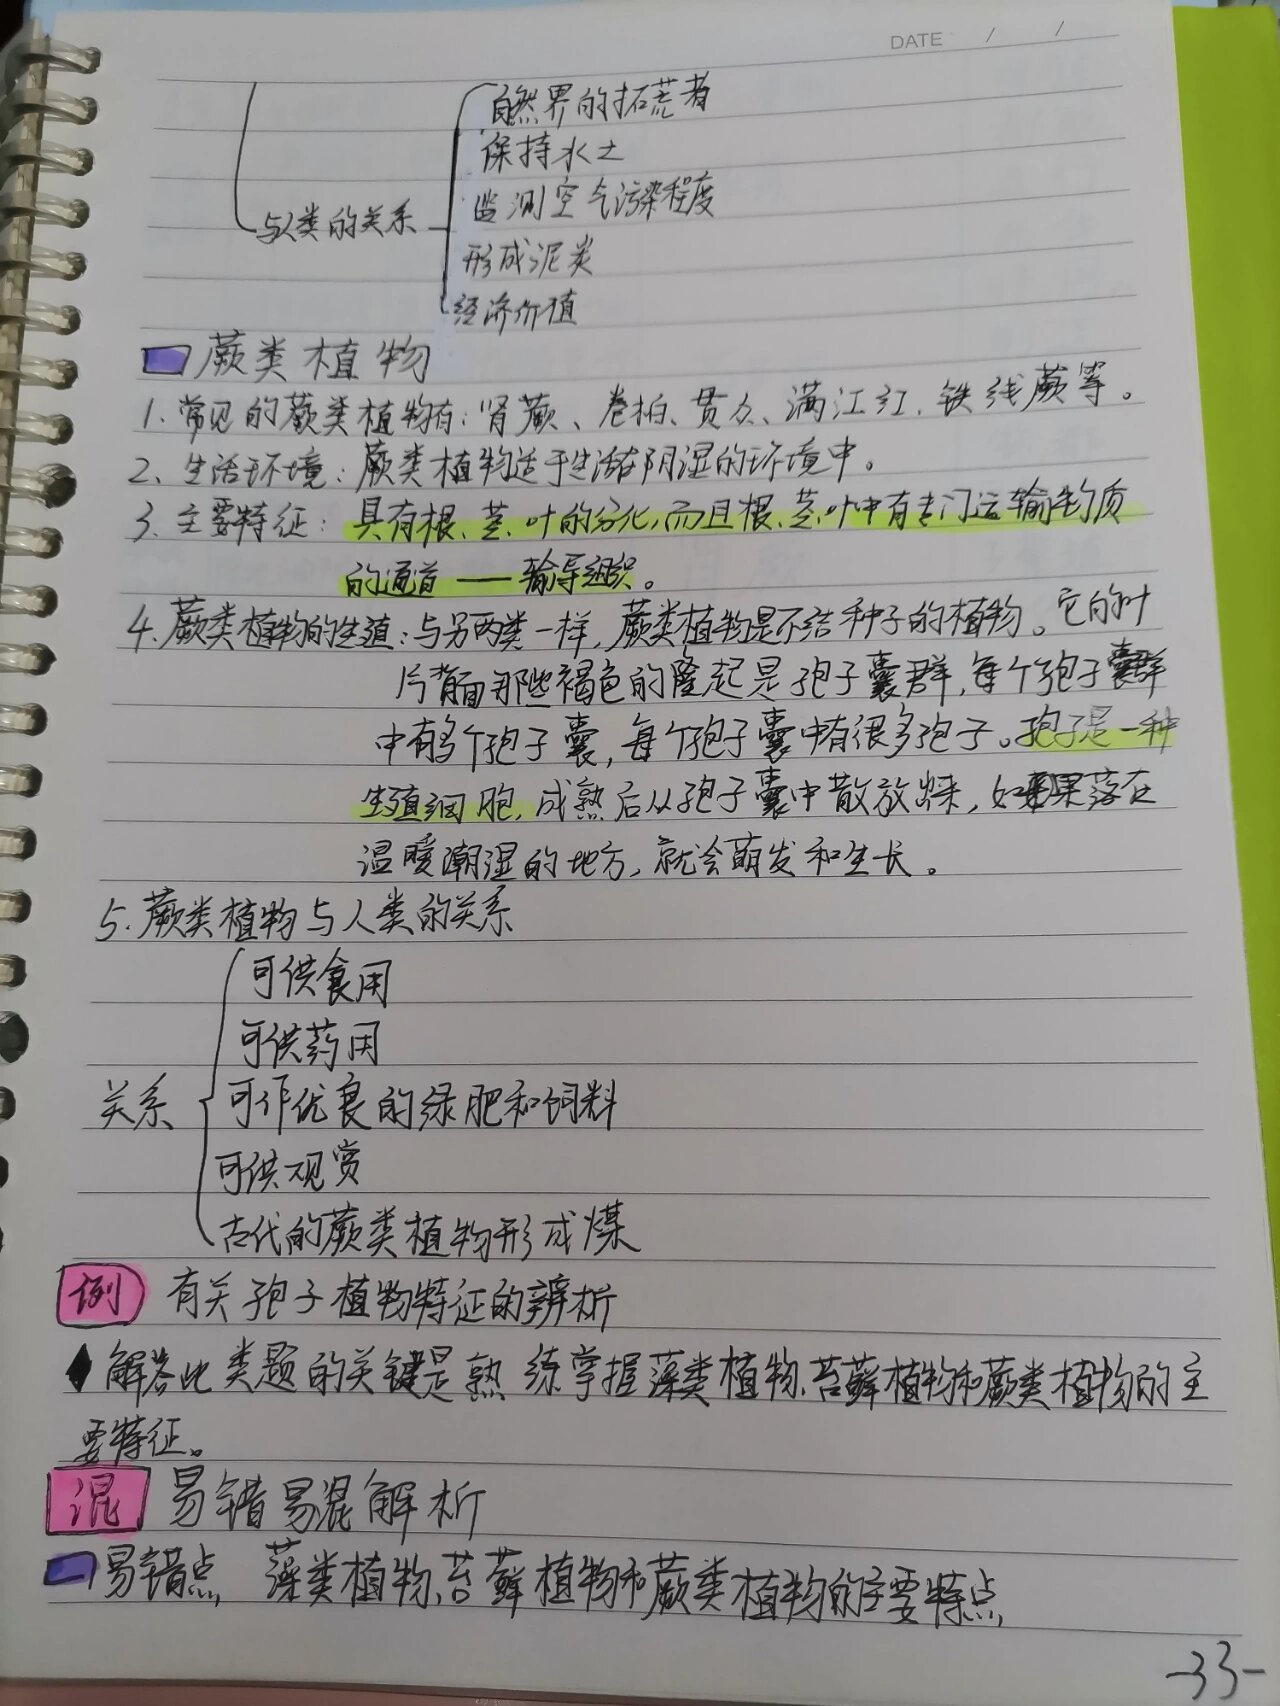 DATE / /
自然界的拓荒者
保持水土
监测空气污染程度
与人类的关系
形成泥炭
经济价值
蕨类植物
1.常见的蕨类植物有:肾蕨、卷柏、贯众、满江红、铁线蕨等。
2、生活环境:蕨类植物适于生活在阴湿的环境中。
3、主要特征:具有根、茎、叶的分化,而且根、茎、叶中有专门运输物质
的通道——输导组织。
4.蕨类植物的生殖:与另两类一样,蕨类植物是不结种子的植物。它的叶
片背面那些褐色的隆起是孢子囊群,每个孢子囊群
中有多个孢子囊,每个孢子囊中有很多孢子。孢子是一种
生殖细胞,成熟后从孢子囊中散放出来,如果落在
温暖潮湿的地方,就会萌发和生长。
5.蕨类植物与人类的关系
可供食用
可供药用
关系
可作优良的绿肥和饲料
可供观赏
古代的蕨类植物形成煤
例 有关孢子植物特征的辨析
解答此类题的关键是熟练掌握藻类植物、苔藓植物和蕨类植物的主
要特征。
混 易错易混解析
易错点 藻类植物、苔藓植物和蕨类植物的主要特点
-33-